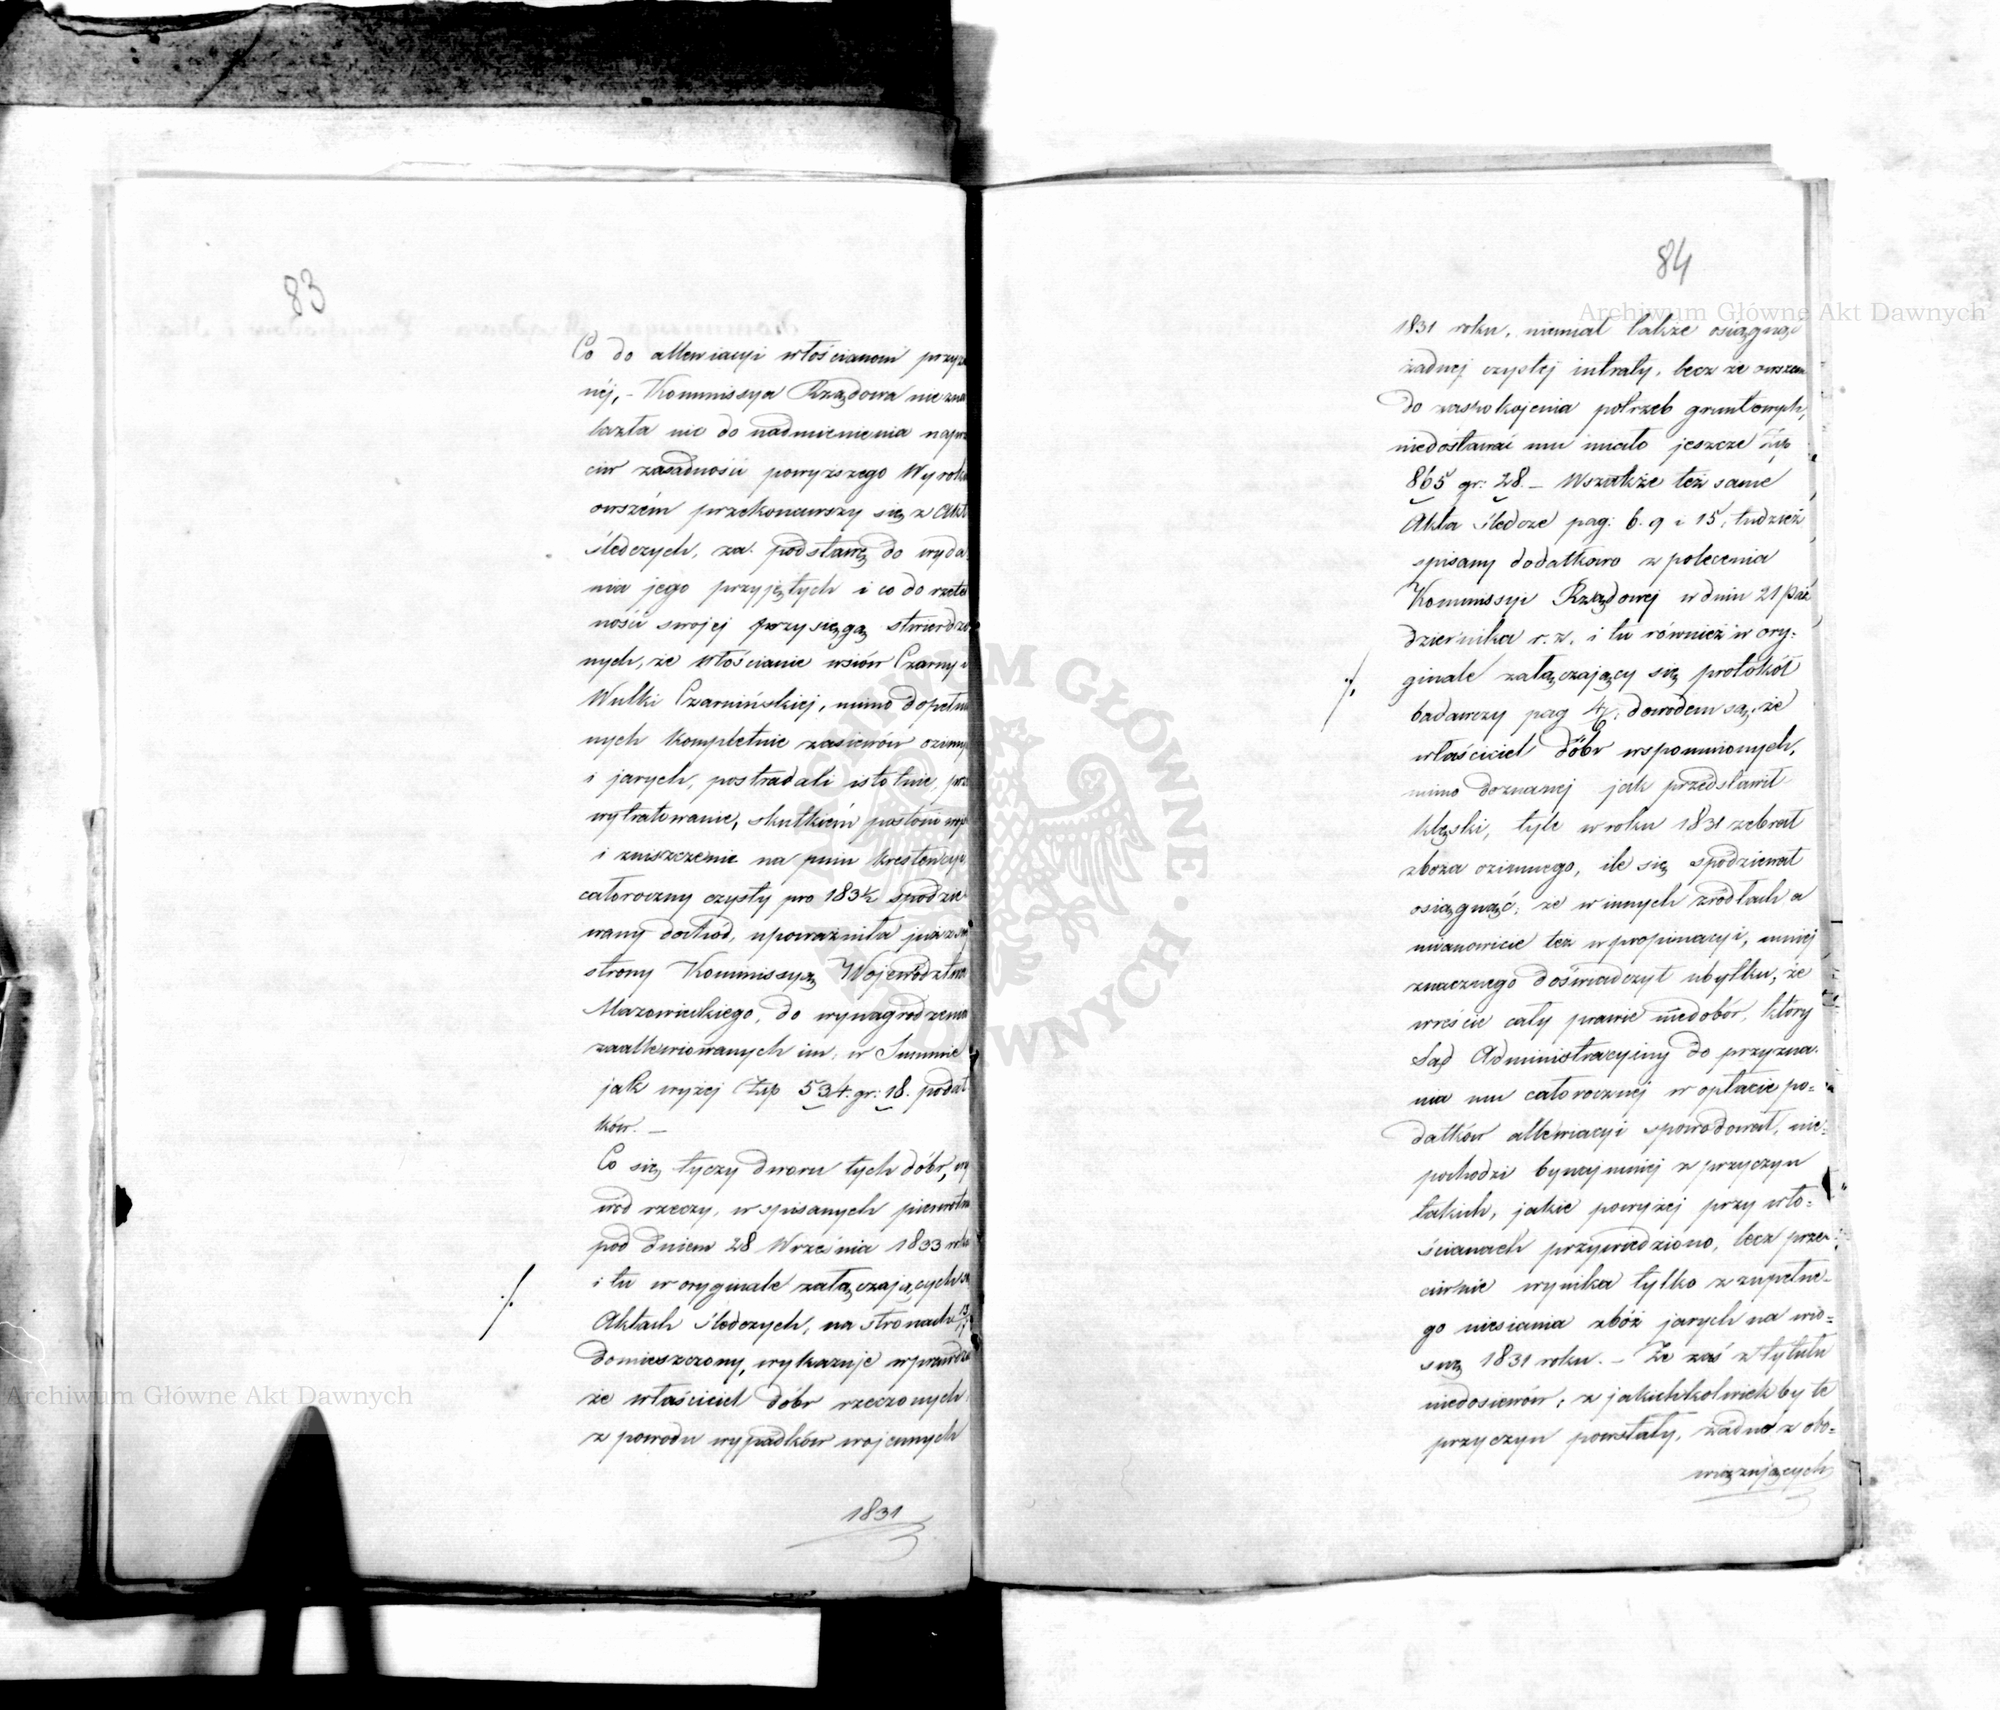 83
Co do allewiacyi włościanom przyzn
néj, - Kommissya Rządowa nie zna
lazła nic do nadmienienia naprz
ciw zasadności powyższego Wyroku
owszém przekonawszy się z Akt
śledczych, za podstawę do wyda
nia jego przyjętych i co do rzetel
ności swojej przysięgą stwierdzo
nych, że włościanie wsiów Czarny i
Wulki Czarnińskiej, mimo dopełnio
nych kompletnie zasiewów ozimy
i jarych, postradali istotnie, prz
wytratowanie, skutkiem postoiu wojs
i zniszczenie na pniu krestencyi,
całoroczny czysty pro 183½ spodzie
wany dochód, upoważniła już z swej
strony Kommissyą Województwa
Mazowieckiego, do wynagrodzenia
zaallewiowanych im, w Summie
jak wyżej Złp 534. gr: 18. podat
ków. —
Co się tyczy dworu tych dóbr, wy
wód rzeczy, w spisanych pierwotnie
pod dniem 28 Września 1833 roku
i tu w oryginale załączających się
./.
Aktach śledczych, na stronach 13
domieszczony, wykazuje wprawdzie
że właściciel dóbr rzeczonych
z powodu wypadków wojennych
1831
84
1831 roku, niemiał także osiągnąć
żadnej czystej intraty, lecz że owszem
do zaspokojenia potrzeb gruntowych,
niedostawać mu miało jeszcze Złp
865 gr: 28. — Wszakże też same
Akta śledcze pag: 6. 9 i 15, tudzież
spisany dodatkowo z polecenia
Kommissyi Rządowej w dniu 21 Paź
dziernika r. z. i tu również w ory=
./.
ginale załączający się protokół
badawczy pag 4/6: dowodem są, że
właściciel dóbr wspomnionych,
mimo doznanej jak przedstawił
klęski, tyle w roku 1831 zebrał
zboża ozimnego, ile się spodziewał
osiągnąć; że w innych źródłach a
mianowicie też w propinacyi, mniej
znacznego doświadczył ubytku, że
wreście cały prawie niedobór, który
Sąd Administracyiny do przyzna=
nia mu całorocznej w opłacie po=
datków allewiacyi spowodował, nie=
pochodzi bynajmniej z przyczyn
takich, jakie powyżej przy wło=
ścianach przywiedziono, lecz prze=
ciwnie wynika tylko z zupełne=
go niesiania zbóż jarych na wio=
snę 1831 roku. — Że zaś z tytułu
niedosiewów, z jakichkolwiek by te
przyczyn powstały, żadna z obo=
wiązujących
Archiwum Główne Akt Dawnych
Archiwum Główne Akt Dawnych
ARCHIWUM GŁÓWNE AKT DAWNYCH